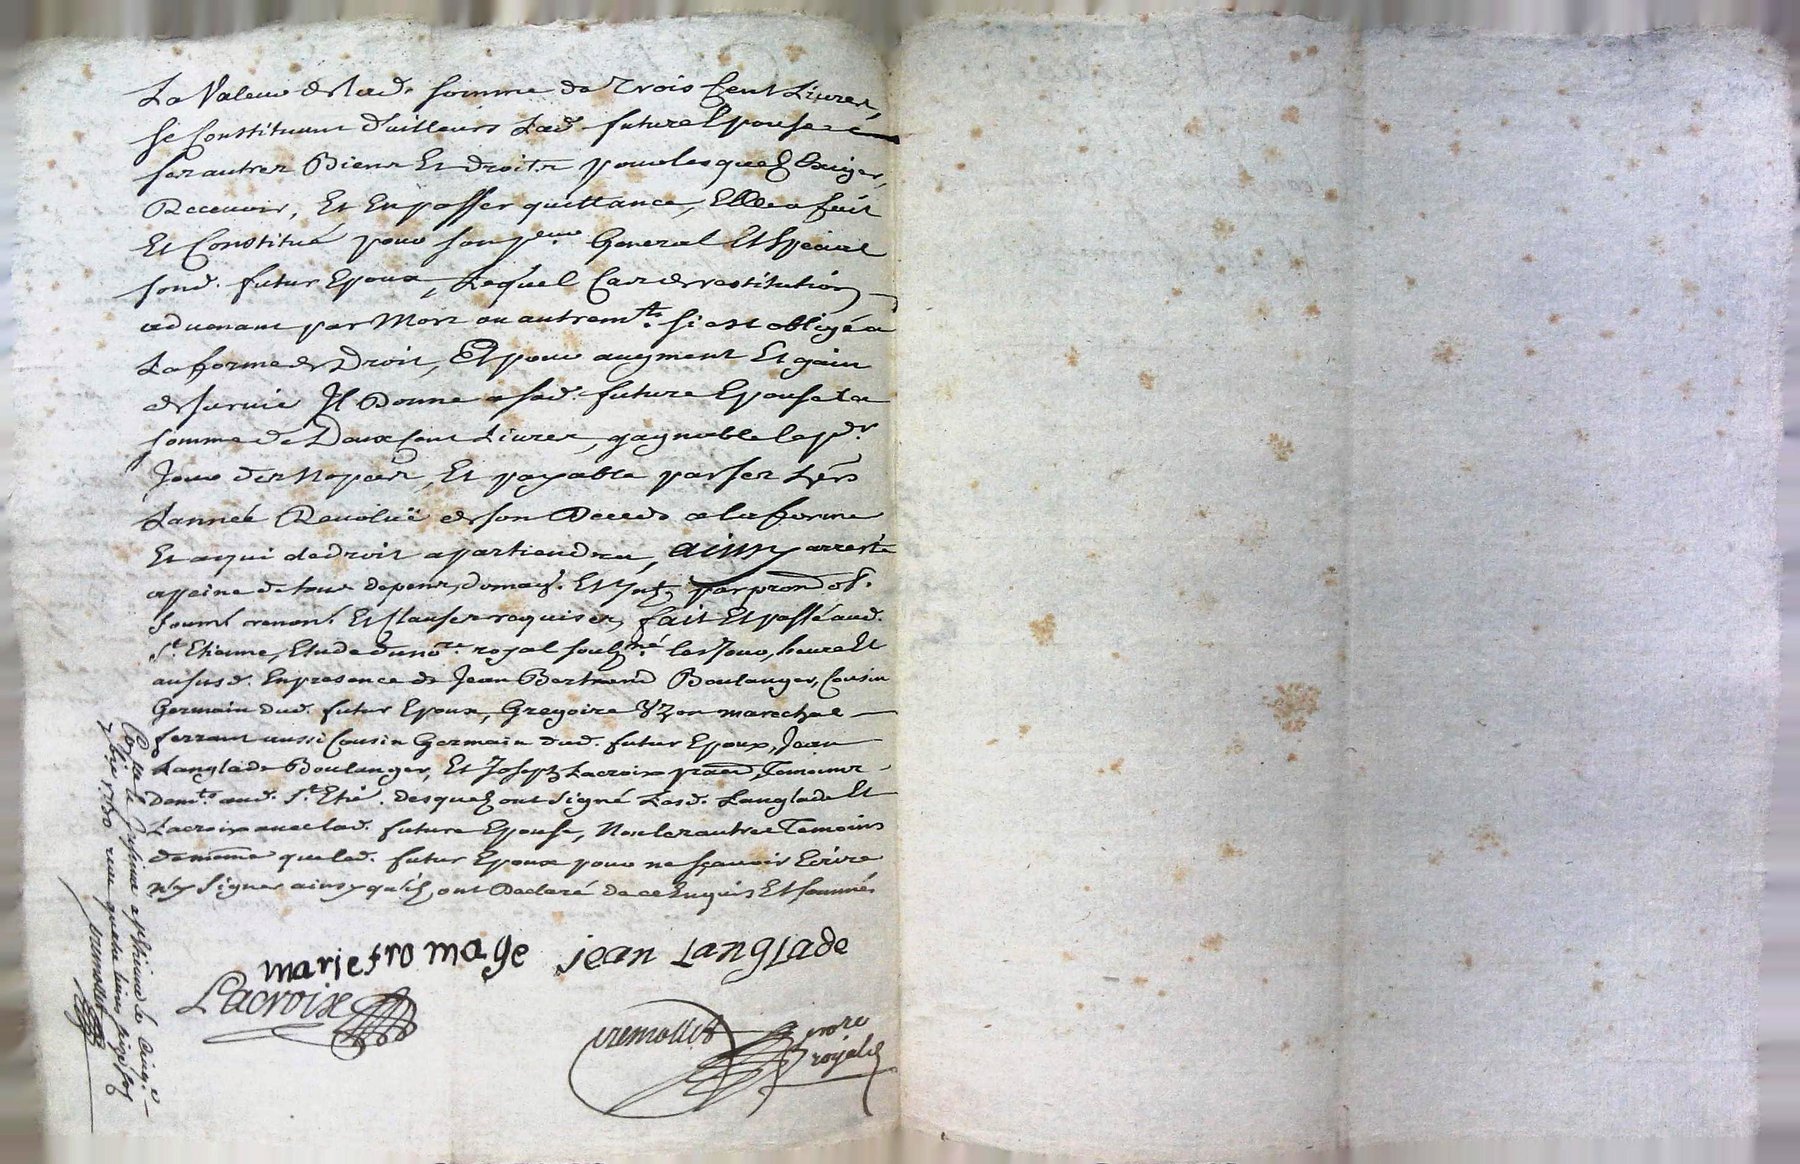 La Valeur de lad. somme de Trois Cent Livres,
se Constituant d'ailleurs Lad. future Epouse
ses autres Biens Et droits pour lesquels Exiger,
Recevoir, Et En passer quittance, Elle a fait
Et Constitué pour son pr General Et Special
sond. futur Epoux, Lequel Cas de restitution
advenant par Mort ou autremt. si est obligé a
La forme de Droit, Et pour augment Et gain
de survie Il Donne a sad. future Epouse La
somme de Deux Cent Livres, gagnable le pr
Jour des Nopces, Et payable par ses hers
L'année Revoluë de son Decedz a la forme
Et a qui de droit apartiendra, ainsy arresté
a peine de tous depens, domag. Et Intz par prom ob.
soumi. renon. Et Clauses requises, fait Et passé aud.
St. Etienne, Etude du nore. royal soubzné. les Jour, heure Et
an susd. En presence de Jean Bertrand Boulanger, Cousin
Germain dud. futur Epoux, Gregoire marechal
ferrant aussi Cousin Germain dud. futur Epoux, Jean
Langlade Boulanger, Et Joseph Lacroix pratn, Temoins
demts. aud. St. Etie. desquels ont signé Lesd. Langlade Et
Lacroix avec lad. future Epouse, Non les autres Temoins
de meme que led. futur Epoux pour ne sçavoir Ecrire
n'y signer ainsy qu'ils ont Declaré de ce Enquis Et sommés
marie fromage jean Langlade
Lacroix
nore
royal